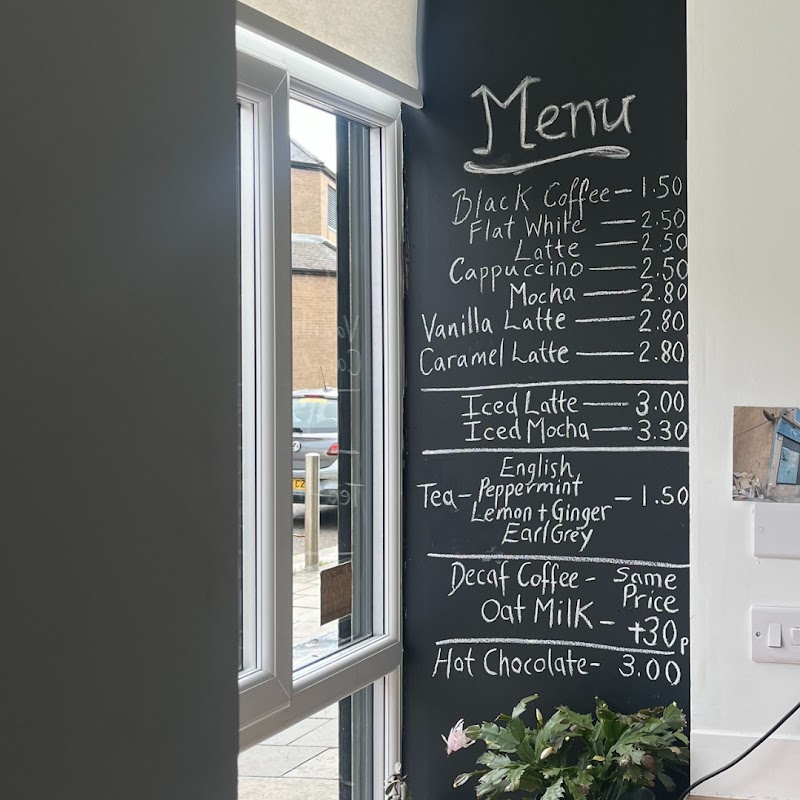 Menu
Black Coffee - 1.50
Flat White - 2.50
Latte - 2.50
Cappuccino - 2.50
Mocha - 2.80
Vanilla Latte - 2.80
Caramel Latte - 2.80
Iced Latte - 3.00
Iced Mocha - 3.30
English
Tea - Peppermint - 1.50
Lemon + Ginger
Earl Grey
Decaf Coffee - Same Price
Oat Milk - +30p
Hot Chocolate - 3.00